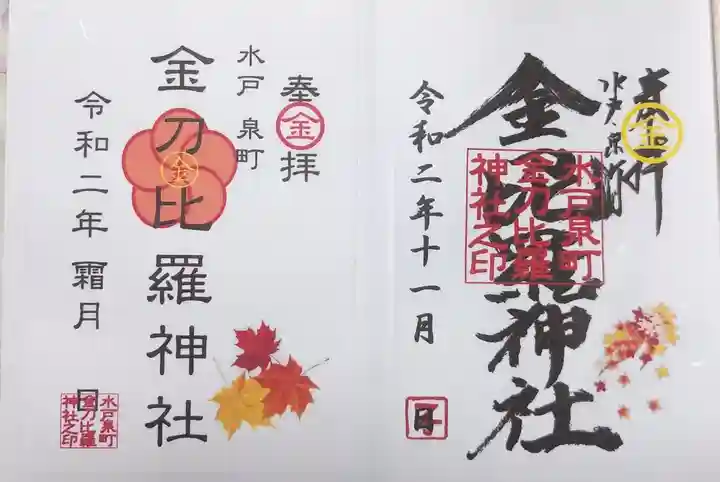 奉拝
金
水戸泉町
金刀比羅神社
水戸泉町
金刀比羅
神社之印
令和二年十一月
日
奉拝
金
水戸 泉町
金刀比羅神社
金
令和二年 霜月 日
水戸泉町
金刀比羅
神社之印